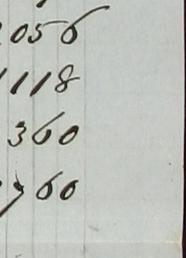 056
1118
360
760